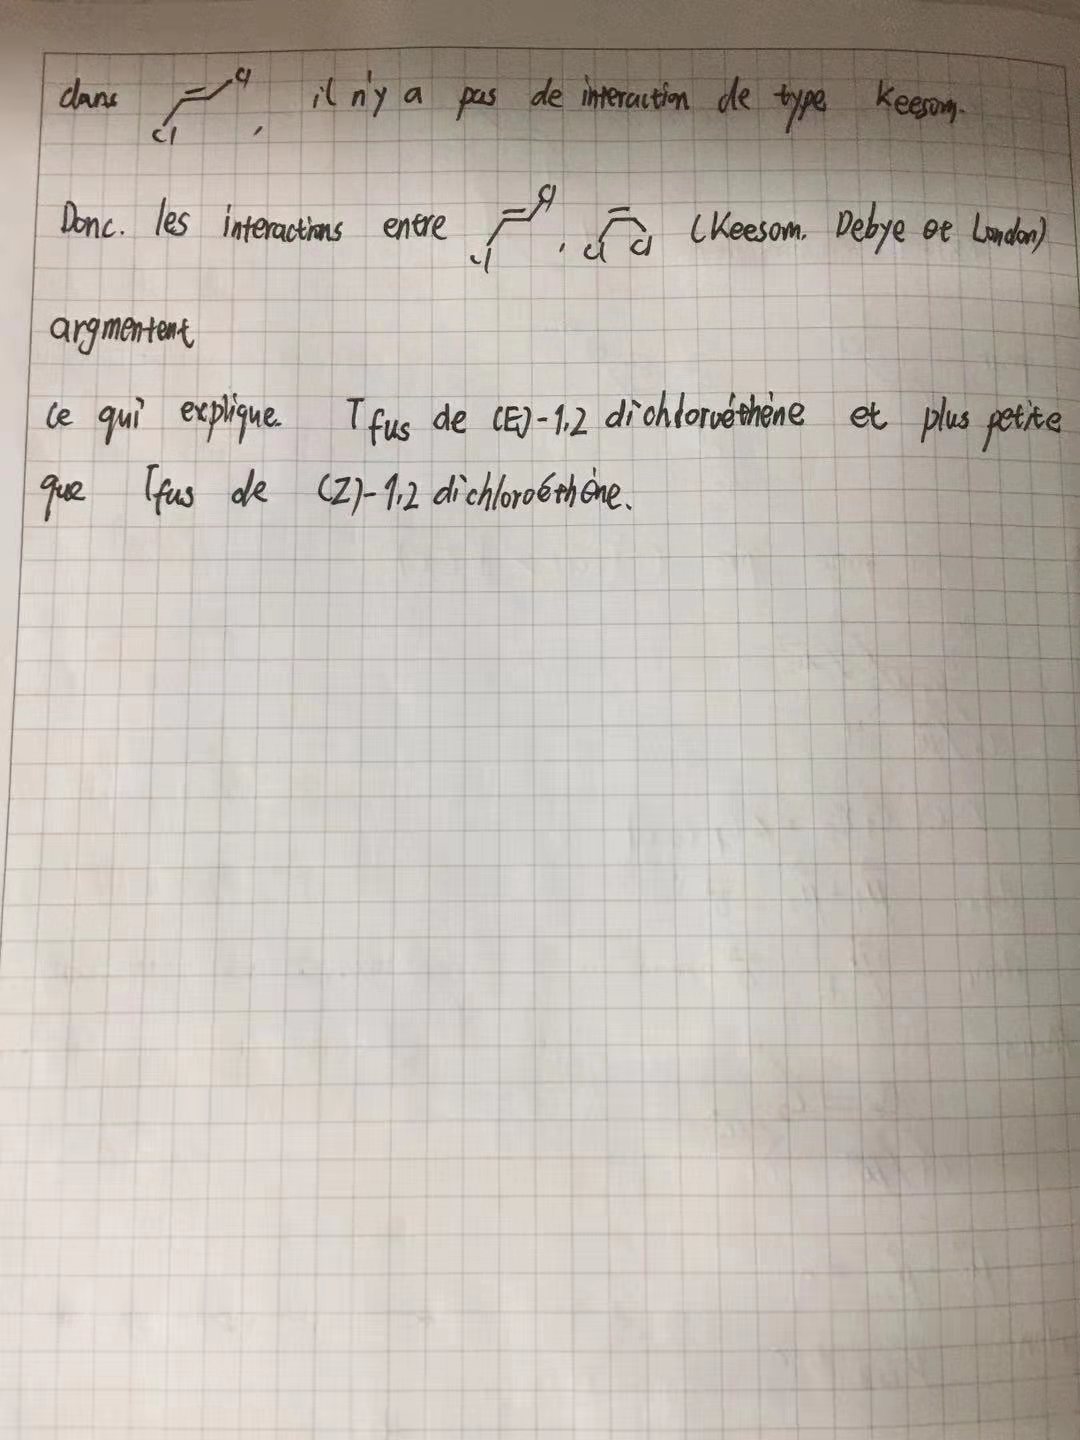 dans Cl Cl, il n'y a pas de interaction de type Keesom.
Donc. les interactions entre Cl Cl, Cl Cl (Keesom. Debye et London)
argmentent
ce qui explique. Tfus de (E)-1,2 dichloroéthène et plus petite
que Tfus de (Z)-1,2 dichloroéthène.